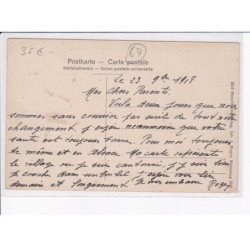 35€
67
Postkarte — Carte postale
Weltpostverein — Union postale universelle
Le 23 9bre 1918
Mes Chers Parents
Voila deux jours que nous
sommes sans courrier par suite de tout notre
changement j'espère néanmoins que votre
santé est toujours bonne. Pour moi toujours
de même et en Alsace. Ma carte représente
le village où je suis cantonné, j'ai
je couche dans un lit
demain et longuement. Je vous embrasse Roger